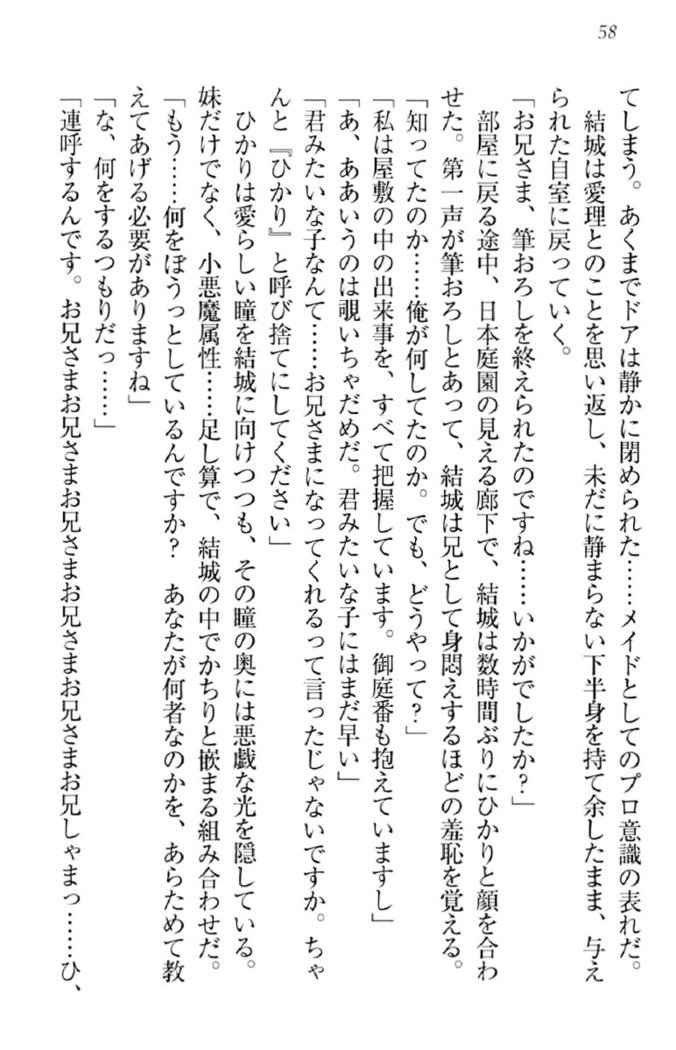 58
てしまう。あくまでドアは静かに閉められた……メイドとしてのプロ意識の表れだ。
　結城は愛理とのことを思い返し、未だに静まらない下半身を持て余したまま、与え
られた自室に戻っていく。
「お兄さま、筆おろしを終えられたのですね……いかがでしたか？」
　部屋に戻る途中、日本庭園の見える廊下で、結城は数時間ぶりにひかりと顔を合わ
せた。第一声が筆おろしとあって、結城は兄として身悶えするほどの羞恥を覚える。
「知ってたのか……俺が何してたのか。でも、どうやって？」
「私は屋敷の中の出来事を、すべて把握しています。御庭番も抱えていますし」
「あ、ああいうのは覗いちゃだめだ。君みたいな子にはまだ早い」
「君みたいな子なんて……お兄さまになってくれるって言ったじゃないですか。ちゃ
んと『ひかり』と呼び捨てにしてください」
　ひかりは愛らしい瞳を結城に向けつつも、その瞳の奥には悪戯な光を隠している。
妹だけでなく、小悪魔属性……足し算で、結城の中でかちりと嵌まる組み合わせだ。
「もう……何をぼうっとしているんですか？　あなたが何者なのかを、あらためて教
えてあげる必要がありますね」
「な、何をするつもりだっ……」
「連呼するんです。お兄さまお兄さまお兄さまお兄さまお兄さまお兄しゃまっ……ひ、